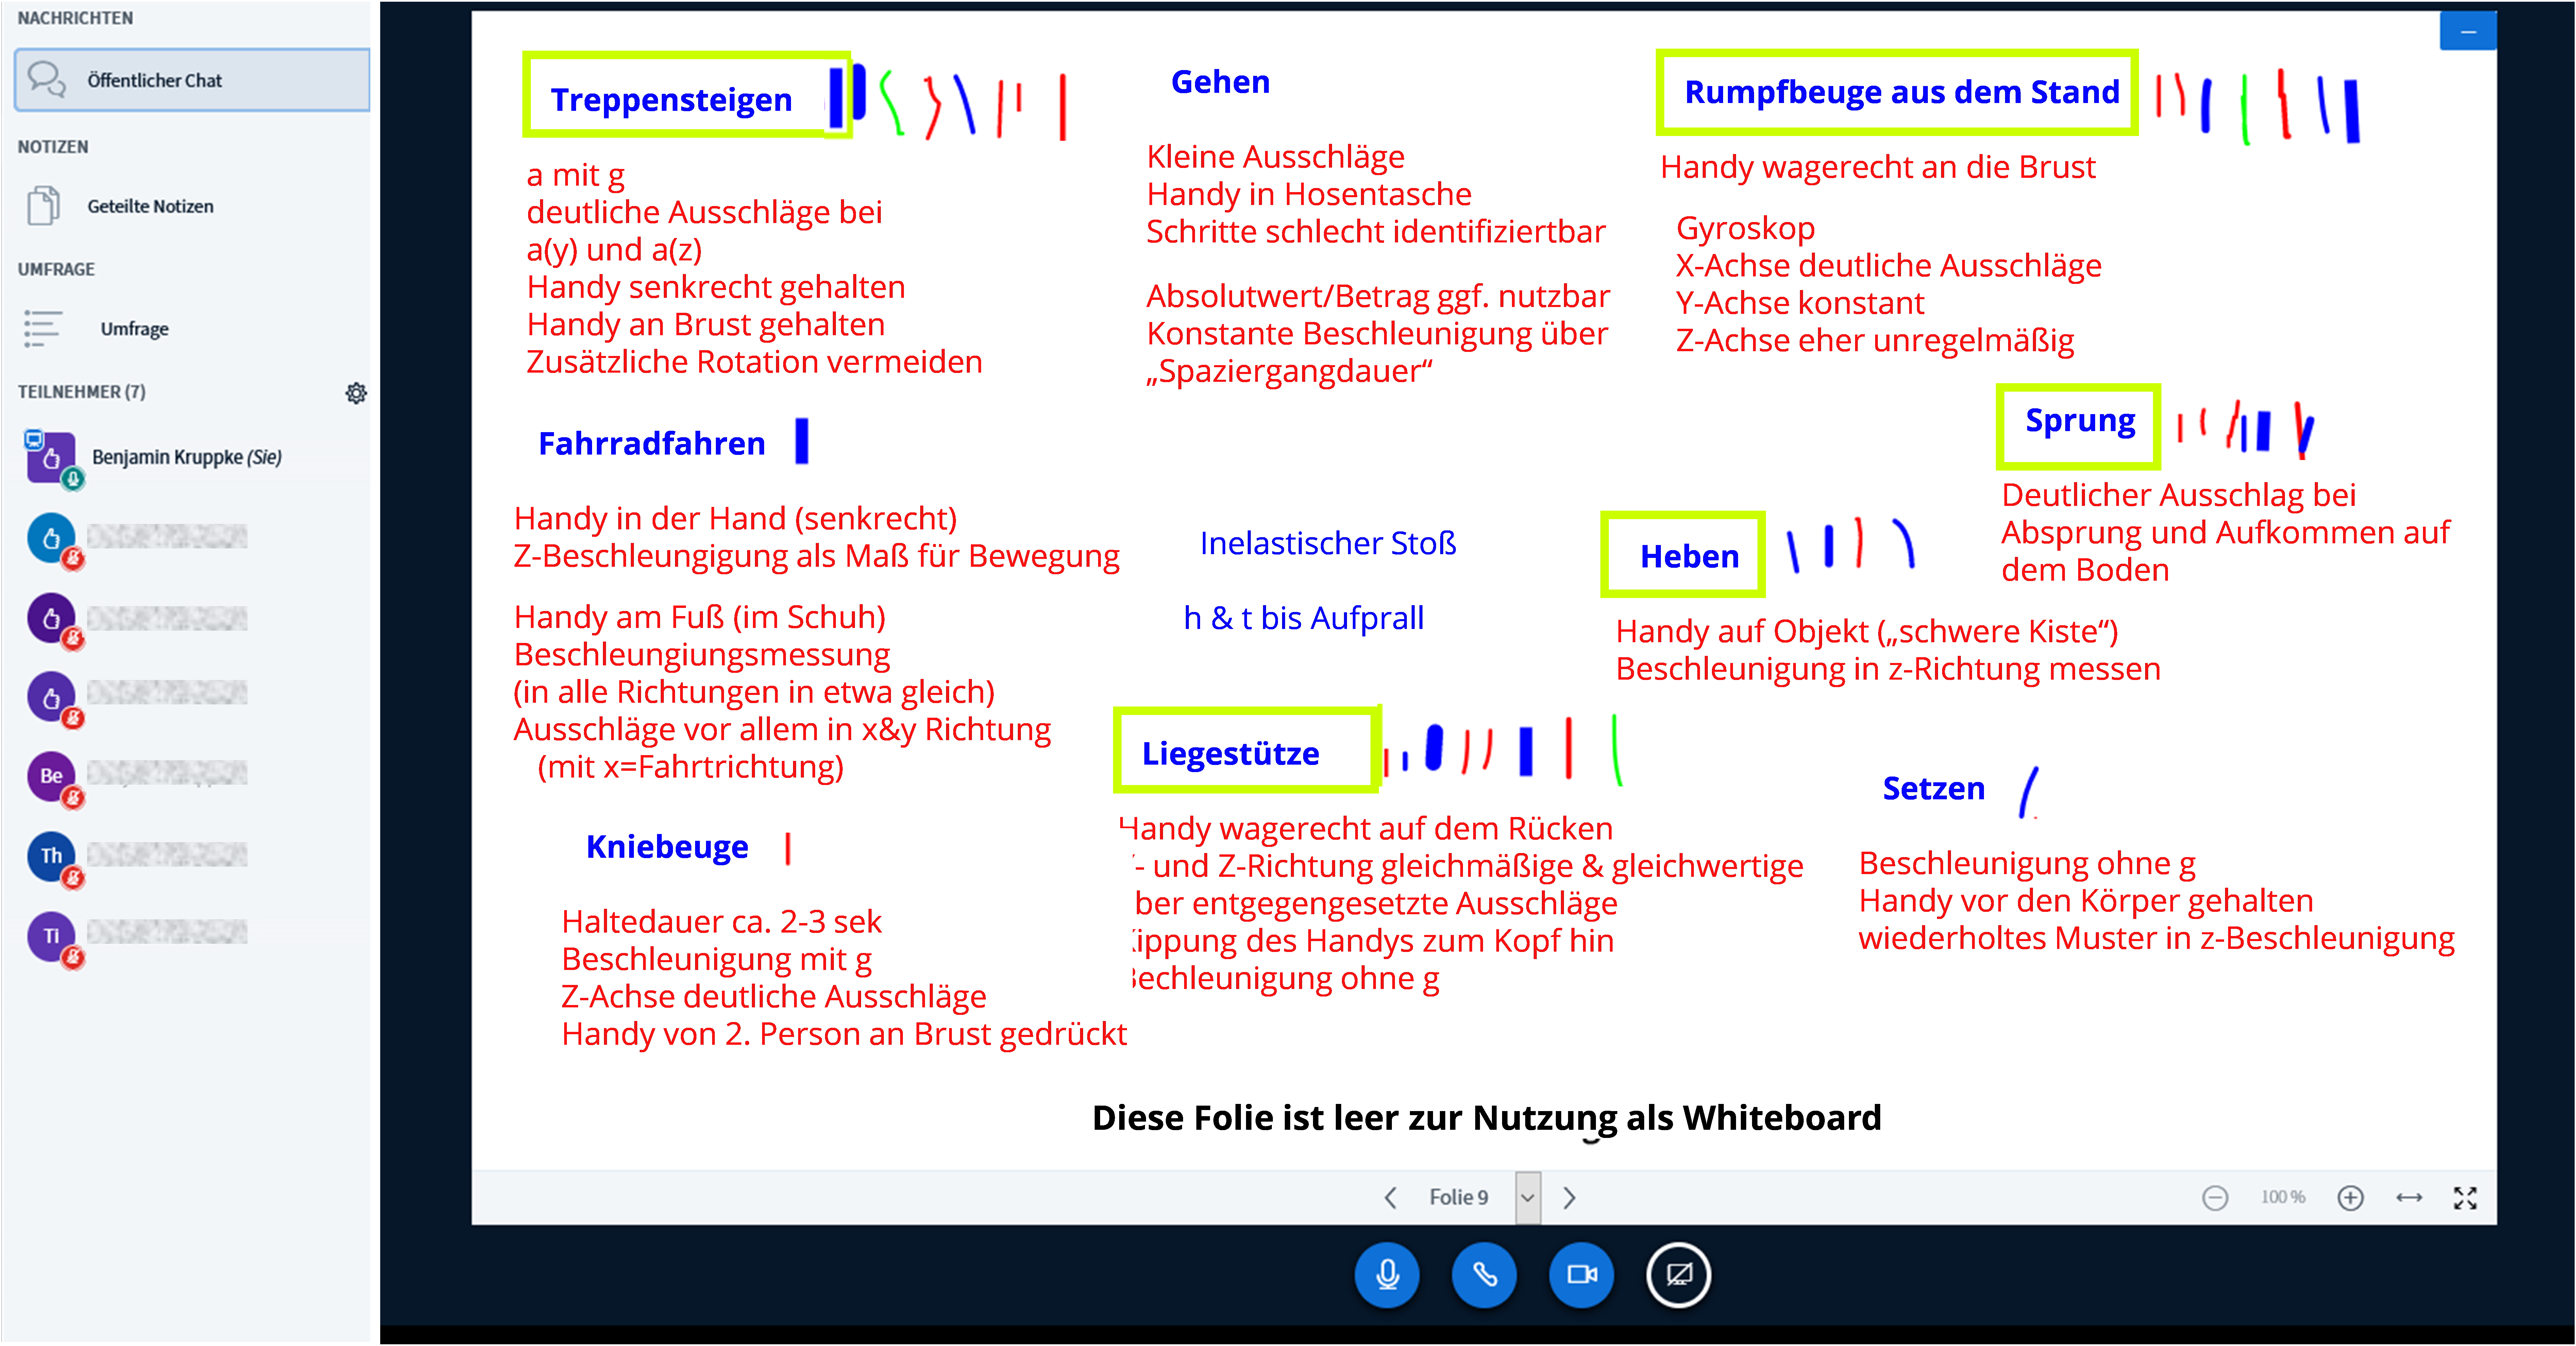 NACHRICHTEN
Öffentlicher Chat
NOTIZEN
Geteilte Notizen
UMFRAGE
Umfrage
TEILNEHMER (7)
Benjamin Kruppke (Sie)
Be
Th
Ti
Treppensteigen
a mit g
deutliche Ausschläge bei
a(y) und a(z)
Handy senkrecht gehalten
Handy an Brust gehalten
Zusätzliche Rotation vermeiden
Gehen
Kleine Ausschläge
Handy in Hosentasche
Schritte schlecht identifiziertbar
Absolutwert/Betrag ggf. nutzbar
Konstante Beschleunigung über
„Spaziergangdauer“
Rumpfbeuge aus dem Stand
Handy wagerecht an die Brust
Gyroskop
X-Achse deutliche Ausschläge
Y-Achse konstant
Z-Achse eher unregelmäßig
Fahrradfahren
Handy in der Hand (senkrecht)
Z-Beschleungigung als Maß für Bewegung
Handy am Fuß (im Schuh)
Beschleungiungsmessung
(in alle Richtungen in etwa gleich)
Ausschläge vor allem in x&y Richtung
(mit x=Fahrtrichtung)
Inelastischer Stoß
h & t bis Aufprall
Sprung
Deutlicher Ausschlag bei
Absprung und Aufkommen auf
dem Boden
Heben
Handy auf Objekt („schwere Kiste“)
Beschleunigung in z-Richtung messen
Liegestütze
Handy wagerecht auf dem Rücken
- und Z-Richtung gleichmäßige & gleichwertige
ber entgegengesetzte Ausschläge
ippung des Handys zum Kopf hin
echleunigung ohne g
Setzen
Beschleunigung ohne g
Handy vor den Körper gehalten
wiederholtes Muster in z-Beschleunigung
Kniebeuge
Haltedauer ca. 2-3 sek
Beschleunigung mit g
Z-Achse deutliche Ausschläge
Handy von 2. Person an Brust gedrückt
Diese Folie ist leer zur Nutzung als Whiteboard
Folie 9
100 %